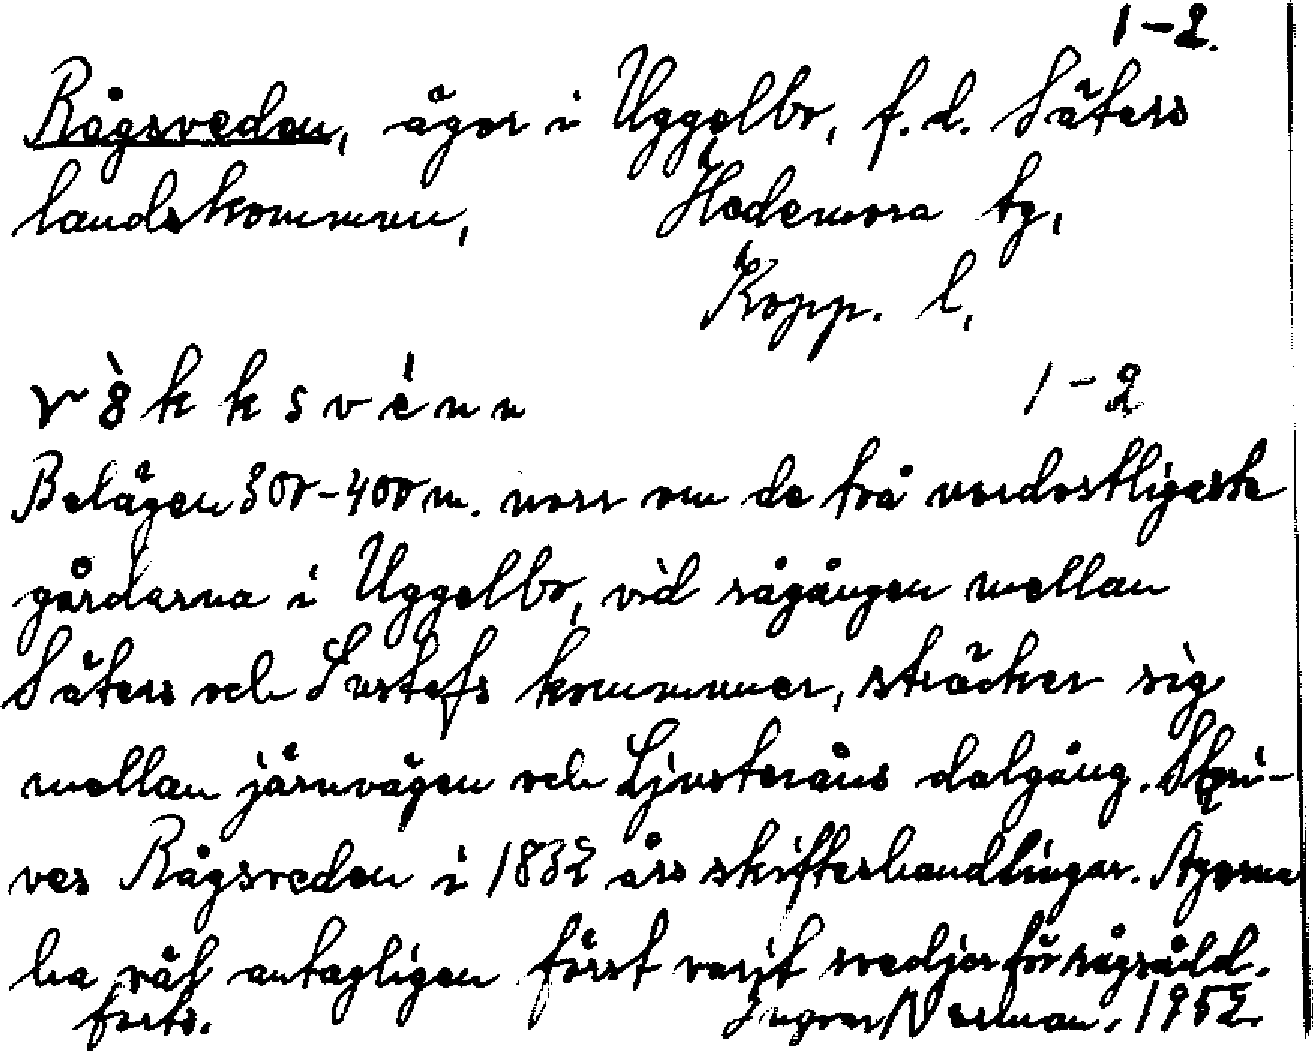 1-2.
Rågsveden, ägor i Uggelbo, f.d. Säters
landskommun, Hedemora tg,
Kopp. l.
r ò k k s v é n n 1-2
Belägen 300-400 m. norr om de två nordostligaste
gårdarna i Uggelbo, vid rågången mellan
Säters och Gustafs kommuner, sträcker sig
mellan järnvägen och Ljusteråns dalgång. Skri-
ves Rågsveden i 1832 års skifteshandlingar. Ägorna
ha väl antagligen först varit svedjor för rågsådd.
forts. Ingvar Norman. 1952.